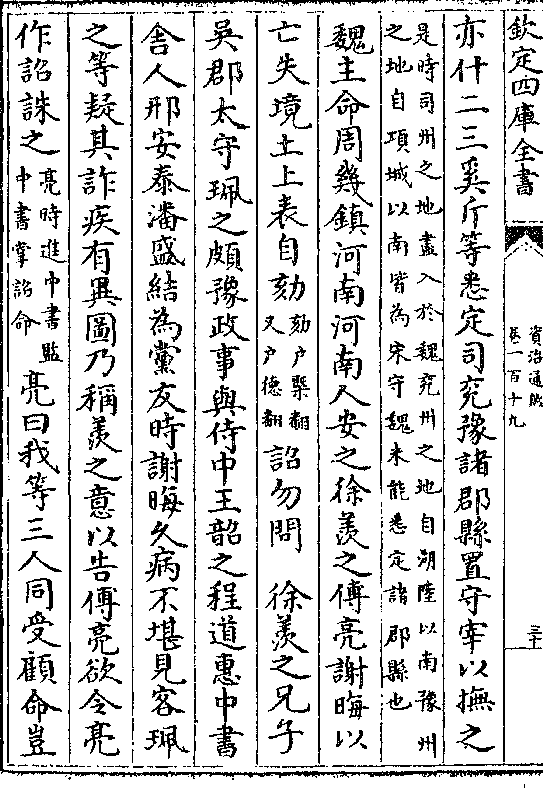 欽定四庫全書
資治通鑑
卷一百十九
三十
亦什二三奚斤等悉定司兖豫諸郡縣置守宰以撫之
是時司州之地盡入於魏兖州之地自湖陸以南豫州
之地自項城以南皆為宋守魏未能悉定諸郡縣也
魏主命周幾鎮河南河南人安之徐羨之傅亮謝晦以
亡失境土上表自劾
劾戸槩翻
又戸得翻
詔勿問　徐羨之兄子
吳郡太守珮之頗豫政事與侍中王韶之程道惠中書
舍人邢安泰潘盛結為黨友時謝晦久病不堪見客珮
之等疑其詐疾有異圖乃稱羨之意以告傅亮欲令亮
作詔誅之
亮時進中書監
中書掌詔命
亮曰我等三人同受顧命豈